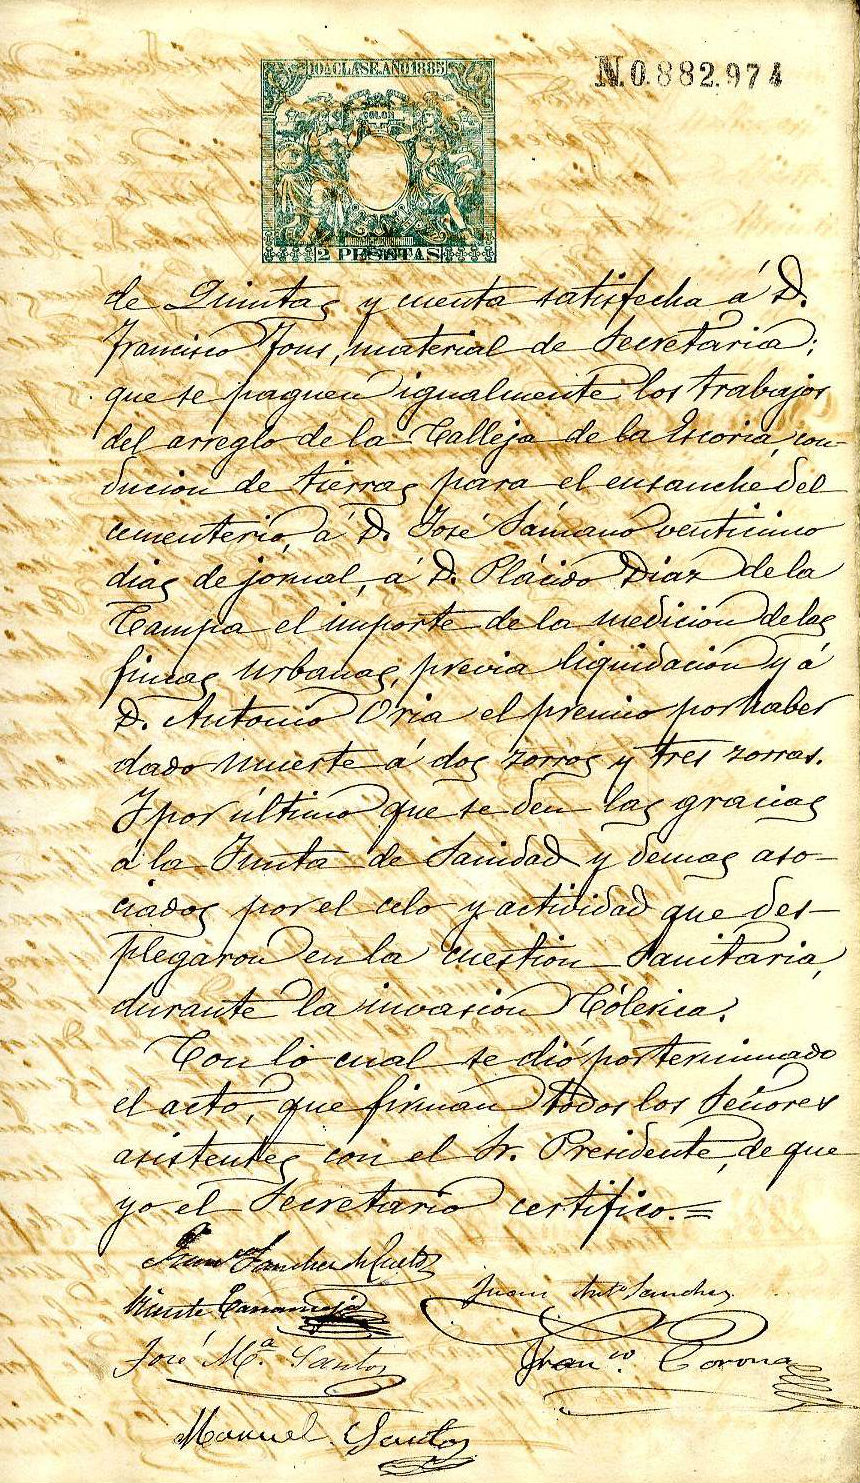 10ª CLASE. AÑO 1885
N.0.882.974
COLON
2 PESETAS
de Quintas y cuenta satisfecha á D.
Francisco Fons, material de Secretaria;
que se paguen igualmente los trabajos
del arreglo de la Calleja de la Escoria, con-
ducion de tierras para el ensanche del
cementerio, á D. José Sámano venticinco
dias de jornal, á D. Plácido Diaz de la
Campa el importe de la medicion de las
fincas urbanas, previa liquidacion y á
D. Antonio Oria el premio por haber
dado muerte á dos zorros y tres zorras.
Y por último que se den las gracias
á la Junta de Sanidad y demas aso-
ciados por el celo y actividad que des-
plegaron en la cuestion Sanitaria,
durante la invasion Cólerica.
Con lo cual se dió por terminado
el acto, que firman todos los Señores
asistentes con el Sr. Presidente, de que
yo el Secretario certifico.=
Franco Sanchez de Cueto
Juan Anto Sanchez
Vicente
José Mª. Santos
Franco. Corona
Manuel Santos